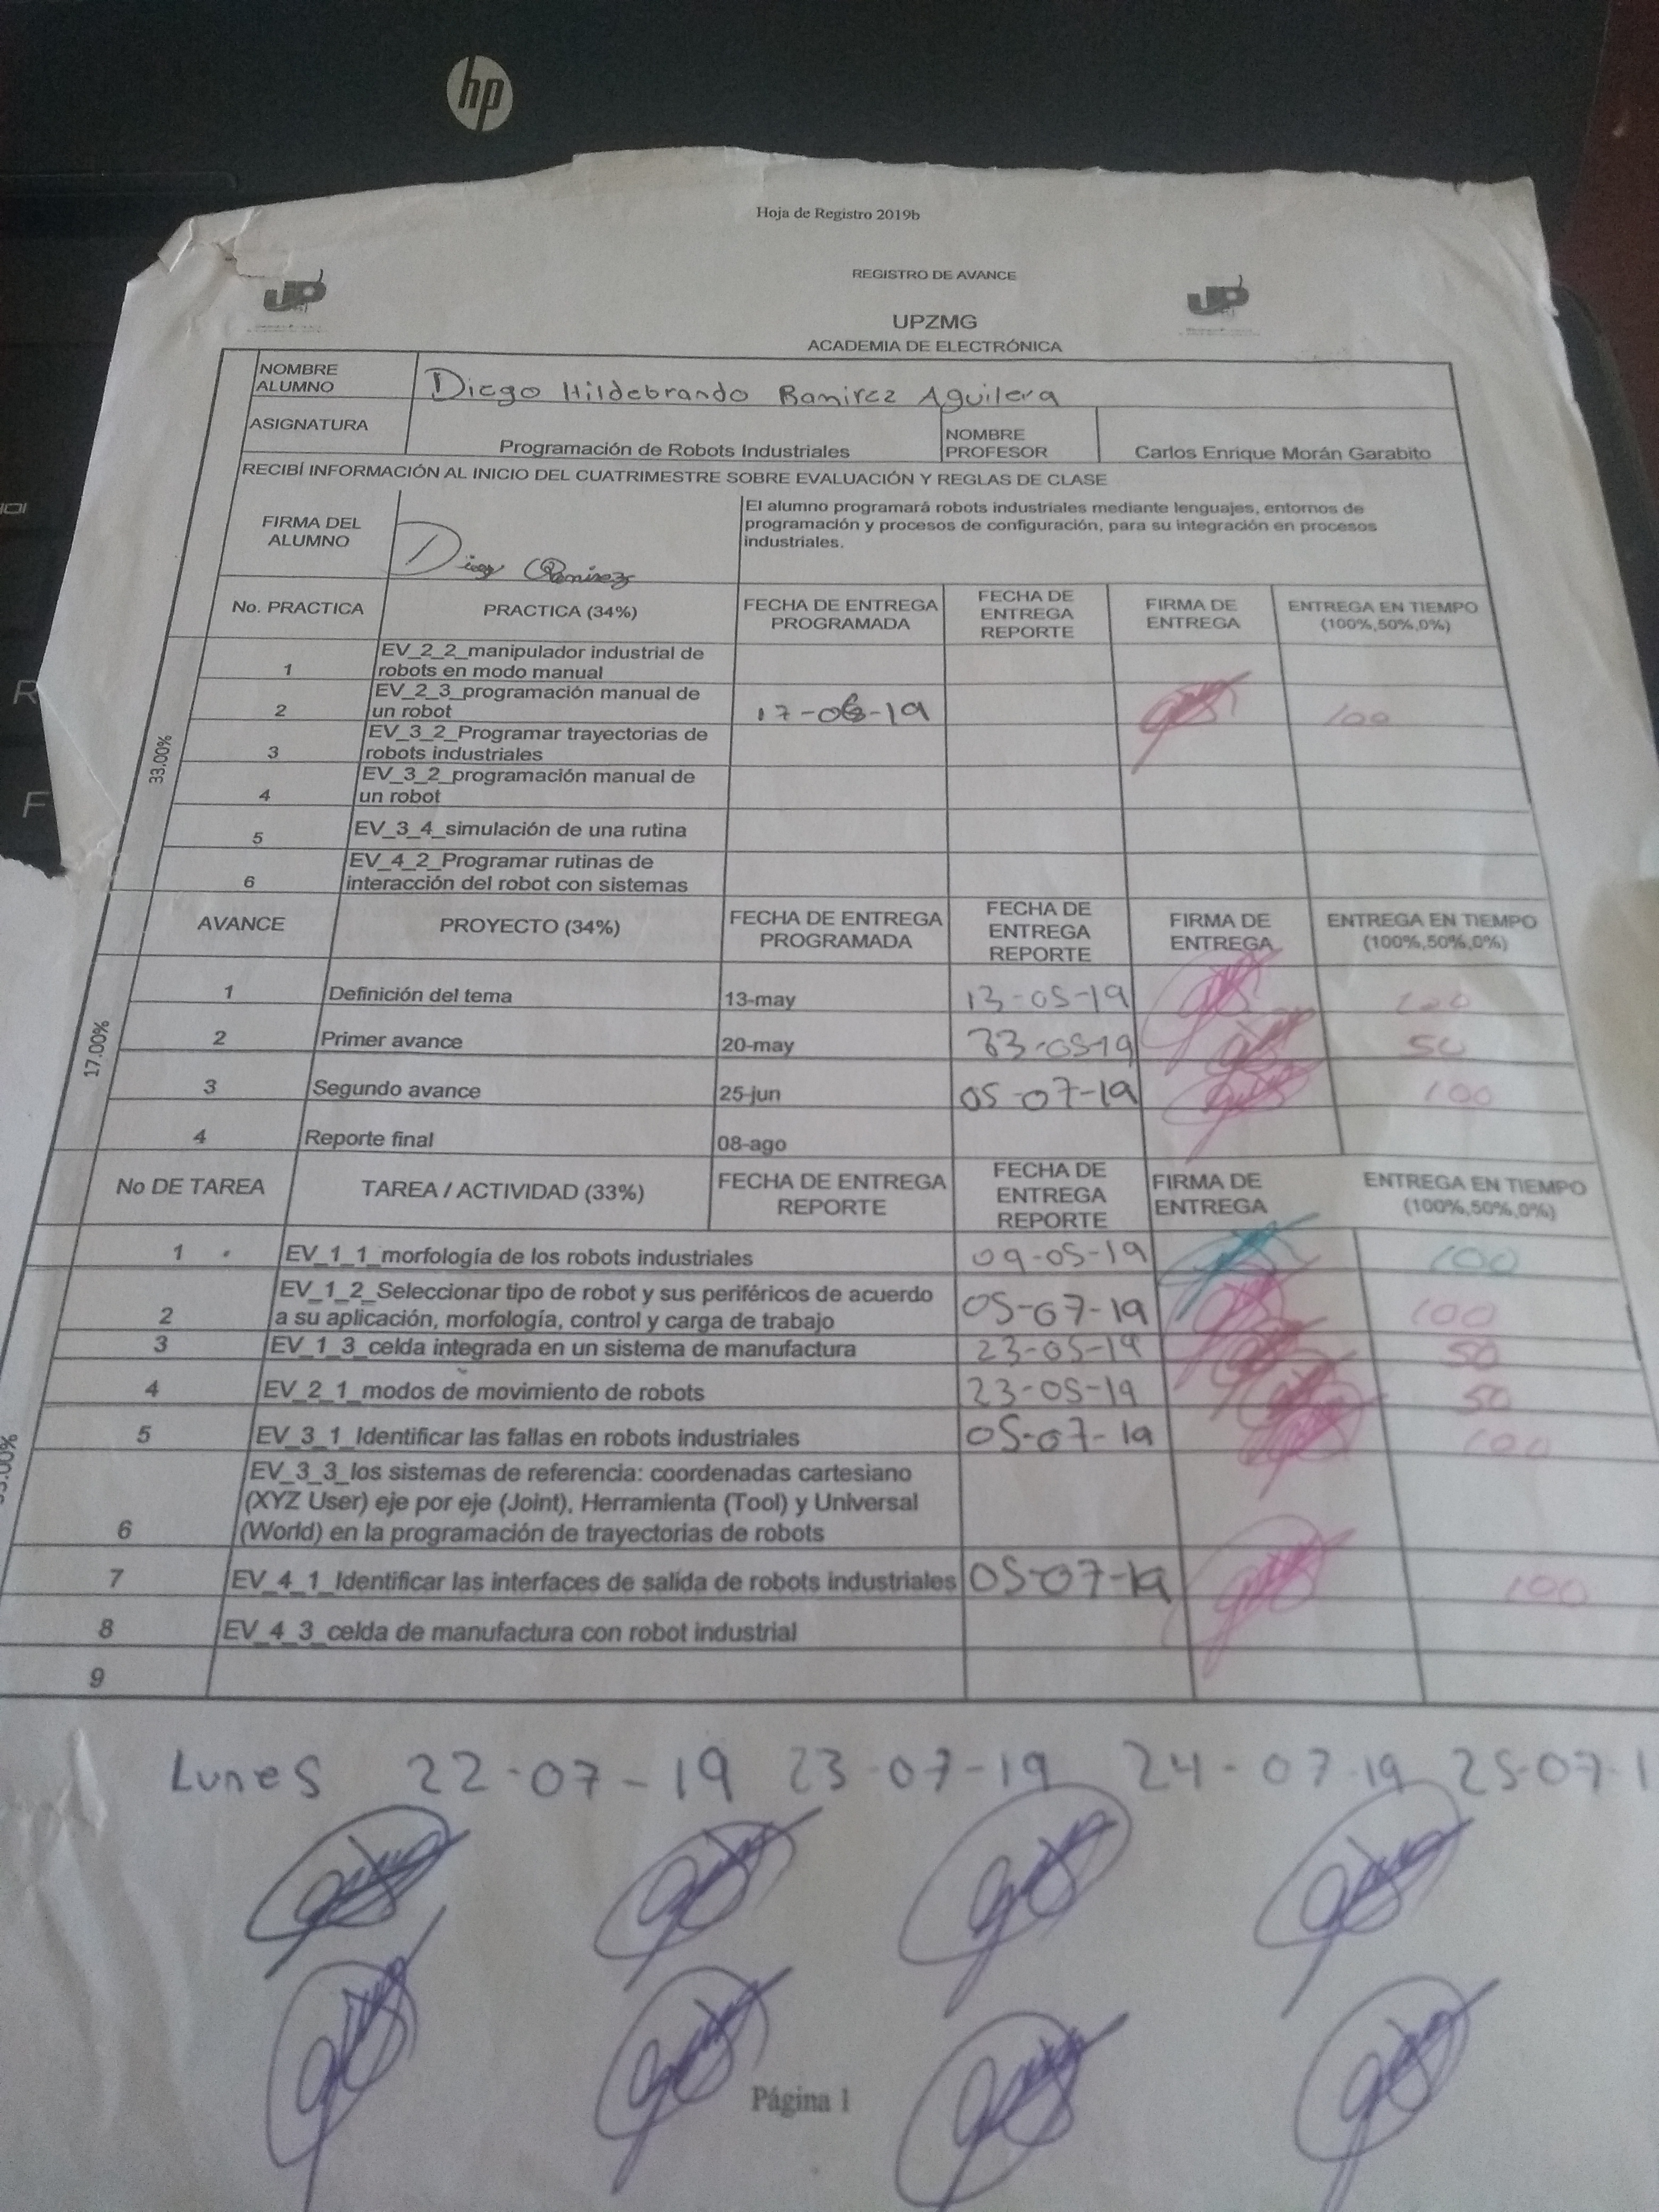 hp
Hoja de Registro 2019b
REGISTRO DE AVANCE
UP UP
UPZMG
ACADEMIA DE ELECTRÓNICA
NOMBRE ALUMNO Diego Hildebrando Ramirez Aguilera
ASIGNATURA Programación de Robots Industriales NOMBRE PROFESOR Carlos Enrique Morán Garabito
RECIBÍ INFORMACIÓN AL INICIO DEL CUATRIMESTRE SOBRE EVALUACIÓN Y REGLAS DE CLASE
FIRMA DEL ALUMNO Diego Ramirez
El alumno programará robots industriales mediante lenguajes, entornos de
programación y procesos de configuración, para su integración en procesos
industriales.
No. PRACTICA PRACTICA (34%) FECHA DE ENTREGA PROGRAMADA FECHA DE ENTREGA REPORTE FIRMA DE ENTREGA ENTREGA EN TIEMPO (100%,50%,0%)
33.00%
1 EV_2_2_manipulador industrial de robots en modo manual
2 EV_2_3_programación manual de un robot 17-06-19 100
3 EV_3_2_Programar trayectorias de robots industriales
4 EV_3_2_programación manual de un robot
5 EV_3_4_simulación de una rutina
6 EV_4_2_Programar rutinas de interacción del robot con sistemas
AVANCE PROYECTO (34%) FECHA DE ENTREGA PROGRAMADA FECHA DE ENTREGA REPORTE FIRMA DE ENTREGA ENTREGA EN TIEMPO (100%,50%,0%)
17.00%
1 Definición del tema 13-may 13-05-19 100
2 Primer avance 20-may 23-05-19 50
3 Segundo avance 25-jun 05-07-19 100
4 Reporte final 08-ago
No DE TAREA TAREA / ACTIVIDAD (33%) FECHA DE ENTREGA REPORTE FECHA DE ENTREGA REPORTE FIRMA DE ENTREGA ENTREGA EN TIEMPO (100%,50%,0%)
1 EV_1_1_morfología de los robots industriales 09-05-19 100
2 EV_1_2_Seleccionar tipo de robot y sus periféricos de acuerdo
a su aplicación, morfología, control y carga de trabajo 05-07-19 100
3 EV_1_3_celda integrada en un sistema de manufactura 23-05-19 50
4 EV_2_1_modos de movimiento de robots 23-05-19 50
5 EV_3_1_Identificar las fallas en robots industriales 05-07-19 100
EV_3_3_los sistemas de referencia: coordenadas cartesiano
(XYZ User) eje por eje (Joint), Herramienta (Tool) y Universal
6 (World) en la programación de trayectorias de robots
7 EV_4_1_Identificar las interfaces de salida de robots industriales 05-07-19 100
8 EV_4_3_celda de manufactura con robot industrial
9
Lunes 22-07-19 23-07-19 24-07-19 25-07-1
Página 1